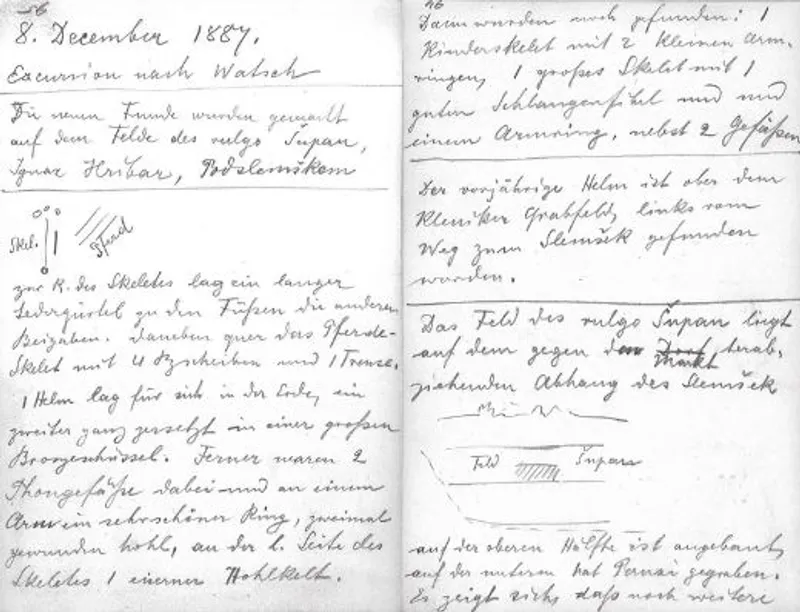 56
8. December 1887.
Excursion nach Watsch
Die neuen Funde wurden gemacht
auf dem Felde des vulgo Šupan,
Ignaz Hribar, Podslemškem
Skel. Pferd
zur R. des Skeletes lag ein langer
Ledergürtel zu den Füßen die anderen
Beigaben. Daneben quer das Pferde-
Skelet mit 4 Zscheiben und 1 Trense.
1 Helm lag für sich in der Erde, ein
zweiter ganz zersetzt in einer großen
Bronzeschüssel. Ferner waren 2
Thongefäße dabei und an einem
Arm ein sehr schöner Ring, zweimal
gewunden hohl, an der l. Seite des
Skeletes 1 eiserner Hohlkelt.
Dann wurden noch gefunden: 1
Kinderskelet mit 2 kleinen Arm-
ringen, 1 großes Skelet mit 1
guten Schlangenfibel und und
einem Armring, nebst 2 Gefäßen
Der vorjährige Helm ist ober dem
Kleniker Grabfeld, links vom
Weg zum Slemšek gefunden
worden.
Das Feld des vulgo Šupan liegt
auf dem gegen den Dorf Markt herab-
ziehenden Abhang des Slemšek
Feld Šupan
auf der oberen Hälfte ist angebaut,
auf der unteren hat Pernzi gegraben.
Es zeigt sich, daß noch weitere